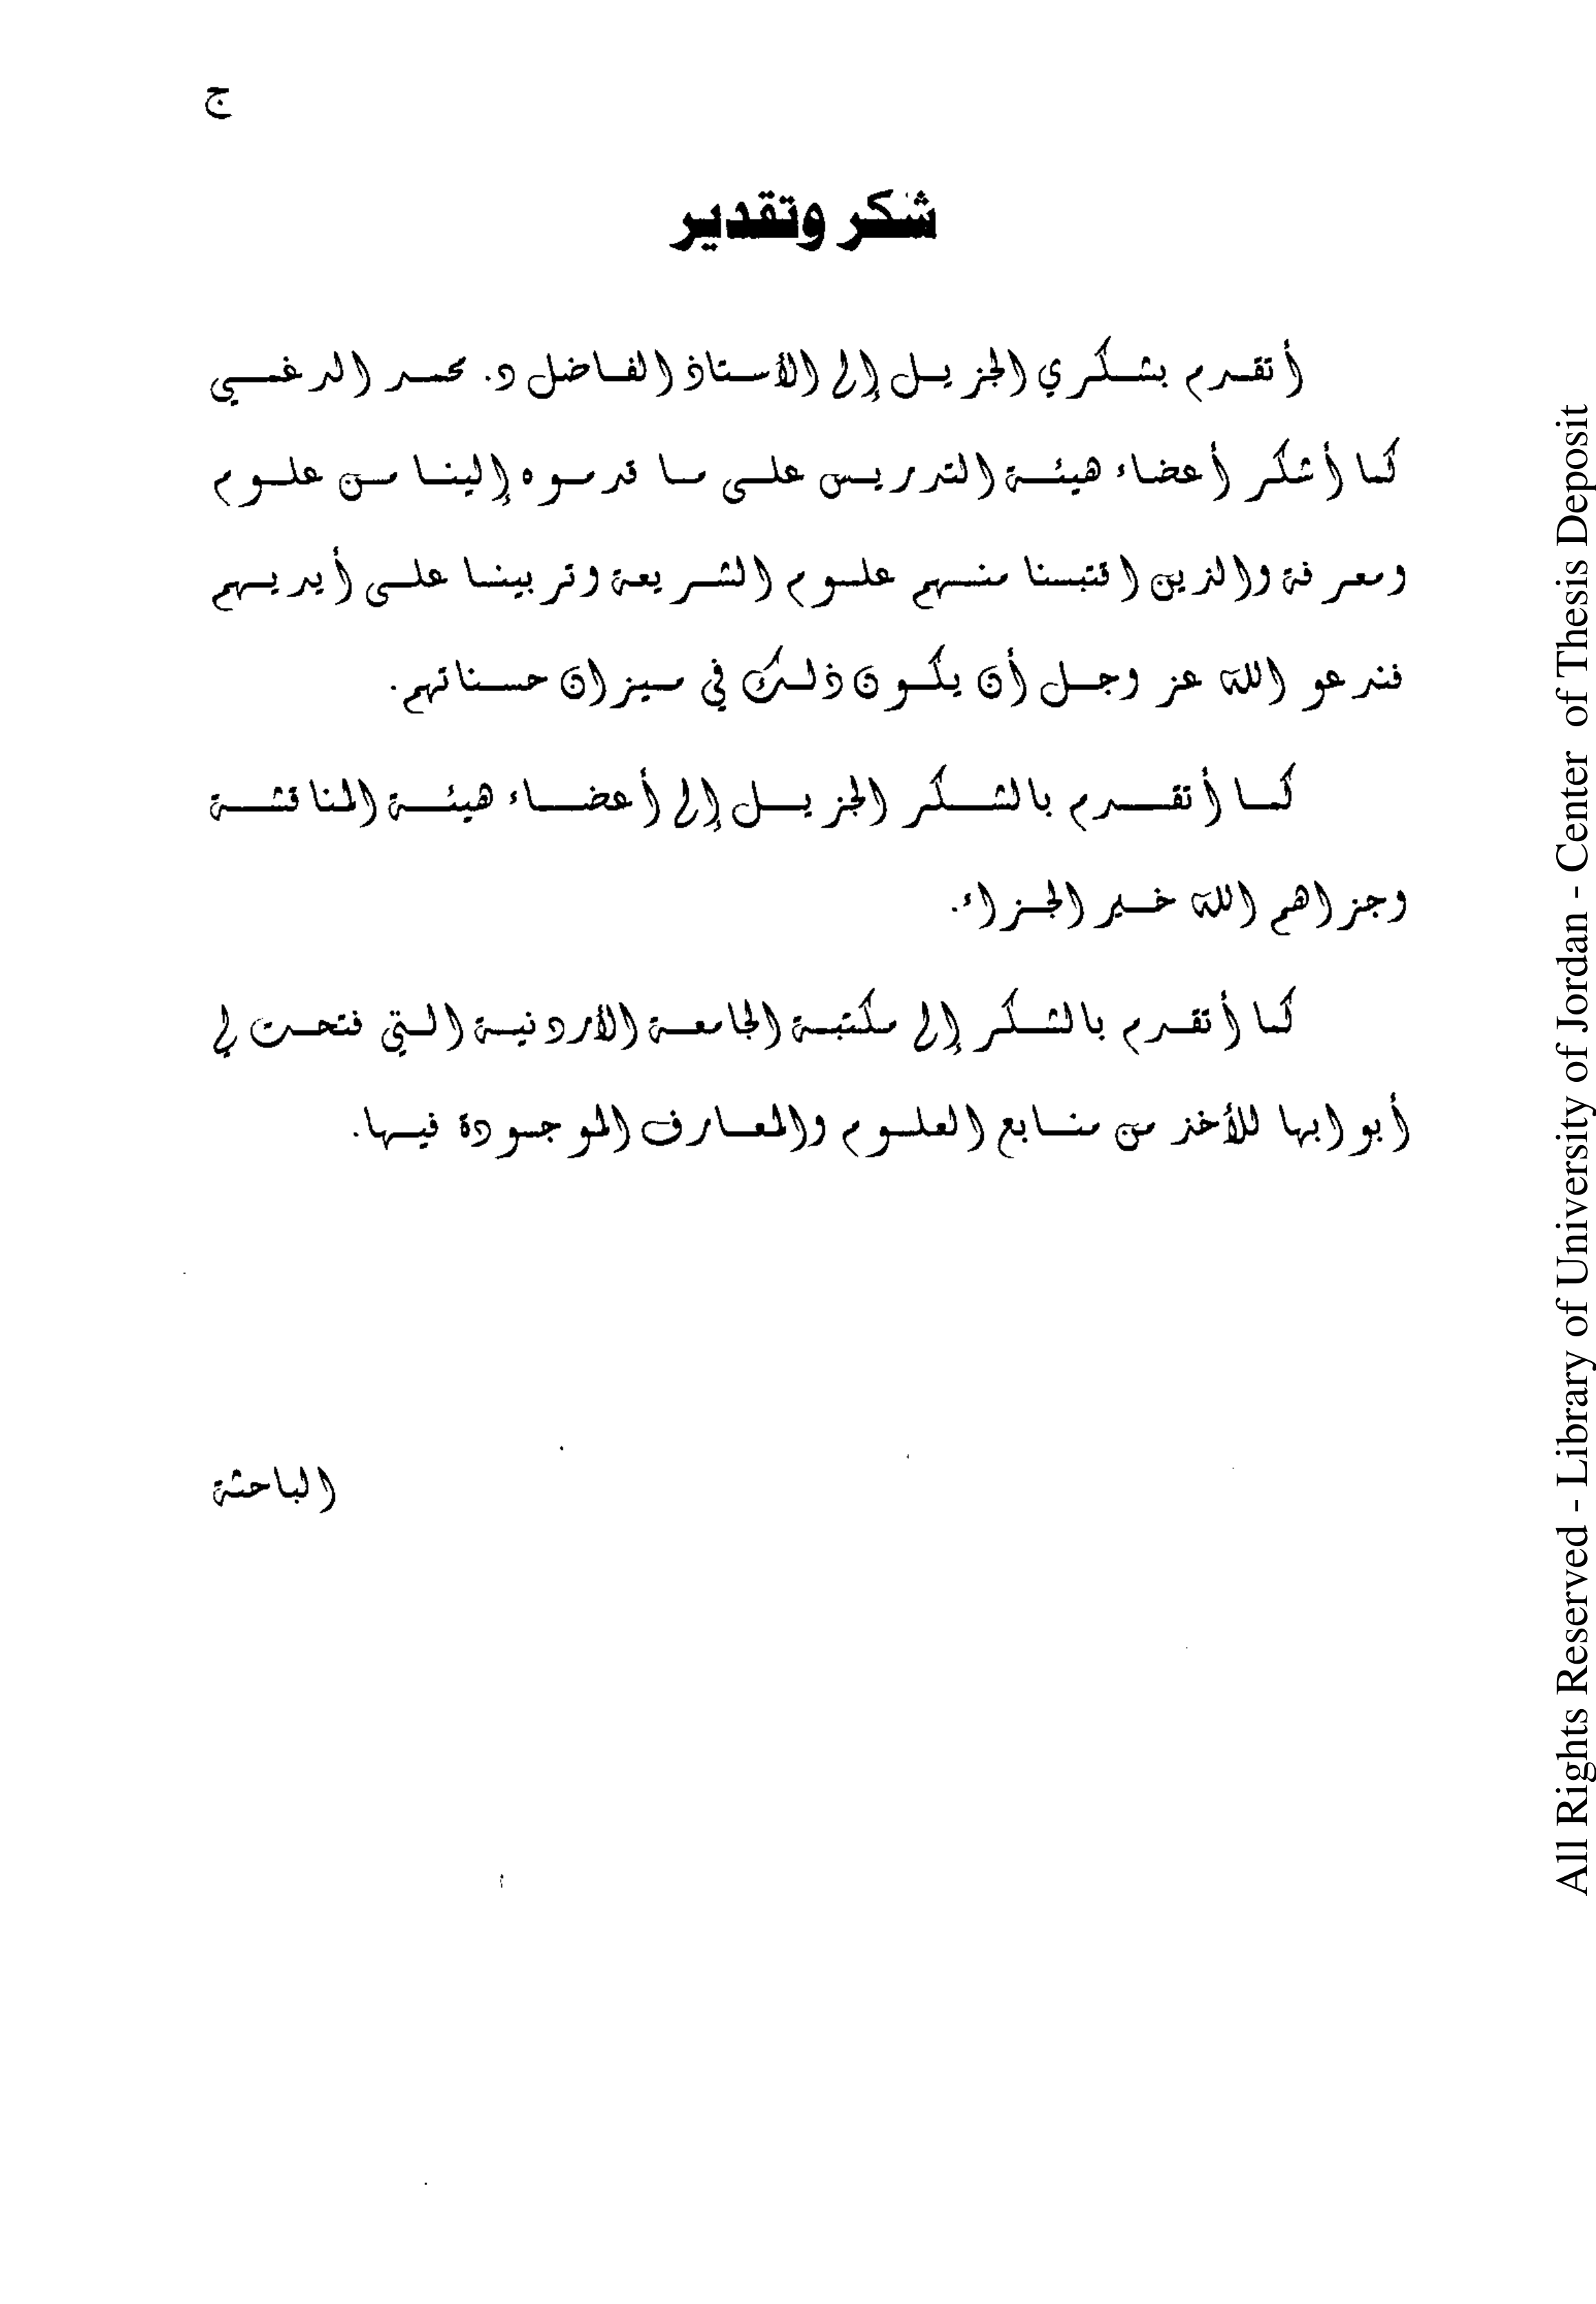 ج
شكر وتقدير
أتقدم بشكري الجزيل إلى الأستاذ الفاضل د. محمد الدغمي
كما أشكر أعضاء هيئة التدريس على ما قدموه إلينا من علوم
ومعرفة والذين اقتبسنا منهم علوم الشريعة وتربينا على أيديهم
فندعو الله عز وجل أن يكون ذلك في ميزان حسناتهم.
كما أتقدم بالشكر الجزيل إلى أعضاء هيئة المناقشة
وجزاهم الله خير الجزاء.
كما أتقدم بالشكر إلى مكتبة الجامعة الأردنية التي فتحت لي
أبوابها للأخذ من منابع العلوم والمعارف الموجودة فيها.
الباحثة
All Rights Reserved - Library of University of Jordan - Center of Thesis Deposit